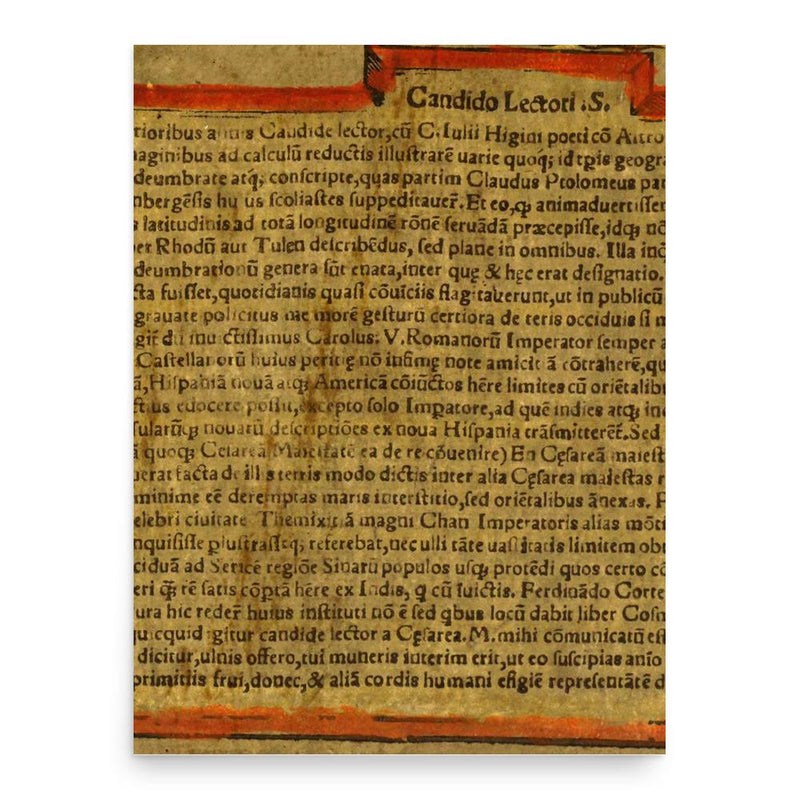 Candido Lectori .S.
rioribus annis Candide lector,cū C.Iulii Higini poeticō Astro
aginibus ad calculū reductis illustrarē uarie quoq; id tp̄is geogra
deumbrate atq; conscripte,quas partim Claudus Ptolomeus par
nbergēsis hu us scoliastes suppeditauer̄.Et eo,ꝙ animaduertisser
s latitudinis ad totā longitudinē rōnē seruādā præcepisse,idq; nō
er Rhodū aut Tulen describēdus, sed plane in omnibus. Illa inq
deumbrationū genera sūt enata,inter quę & hęc erat designatio.
cta fuisset,quotidianis quasi cōuiciis flagitauerunt,ut in publicū
grauate policitus me morē gesturū certiora de teris occiduis si n
giē dū inuictissimus Carolus: V.Romanorū Imperator semper a
Castellanorū huius peritię nō infimę note amicit ā cōtraherē,qu
ā,Hispaniā nouā atq; Americā cōiūctos hēre limites cū oriētalibu
edocere possit,excepto solo Imperatore,ad quē indies atq; in
sularūq; nouarū descriptiōes ex noua Hispania trāsmitterēt.Sed
ā quoq; Cesarea Maiestate ea de re cōuenire) En Cęsareā maiest
uerat facta de illis terris modo dictis inter alia Cęsarea maiestas r
minime eē deremptas maris interstitio,sed oriētalibus ānexas. P
elebri ciuitate Themixitā magni Chan Imperatoris alias mōti
nquisisse plustrasseq; referebat,nec ulli tāte uastitatis limitem ob
ciduā ad Sericē regiōe Sinarū populos usq; protēdi quos certo cō
eri ꝙ̄ rē satis cōptā hēre ex Indis, q cū iuictis. Ferdinādo Corte
ura hic reder̄ huius instituti nō ē sed qbus locū dabit liber Cosm
quicquid igitur candide lector a Cęsarea.M.mihi cōmunicatū est
dicitur,ulnis offero,tui muneris interim erit,ut eo suscipias anīo
primitiis frui,donec,& aliā cordis humani efigiē representātē d